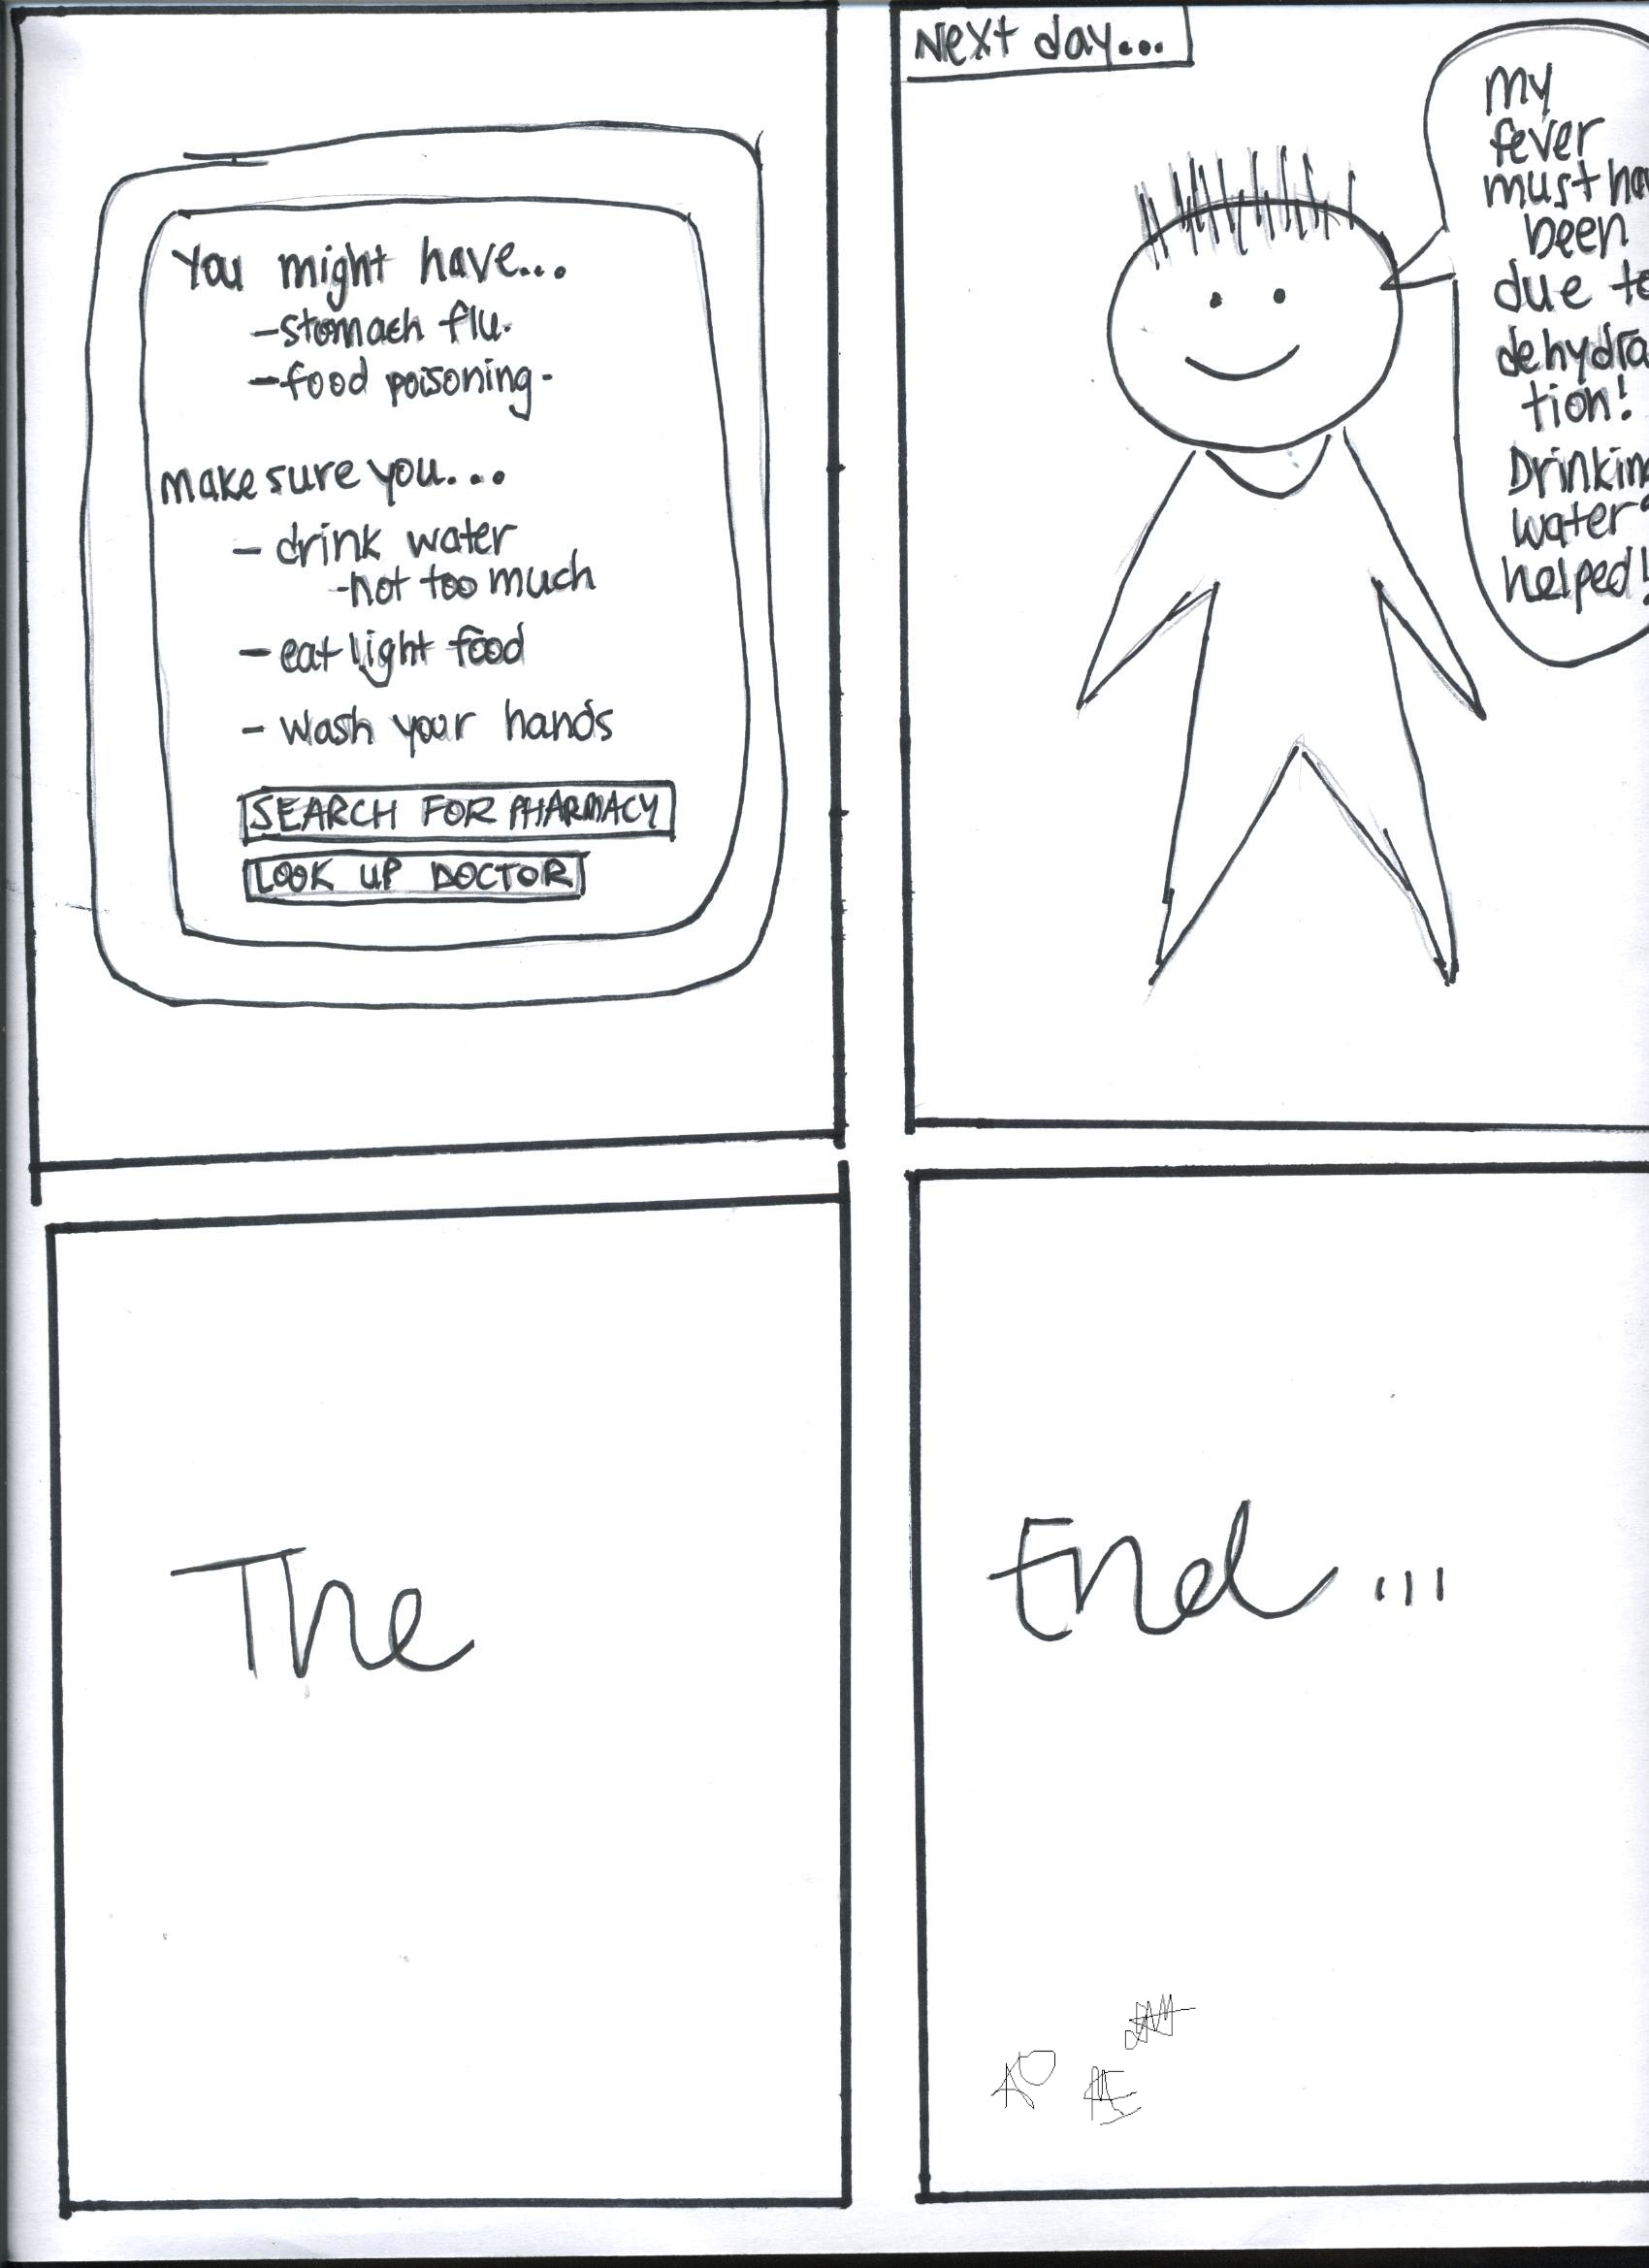 You might have...
-stomach flu.
-food poisoning-
make sure you...
- drink water
-not too much
- eat light food
- wash your hands
SEARCH FOR PHARMACY
LOOK UP DOCTOR
Next day...
my
fever
must ha
been
due to
dehydra
tion!
Drinking
water
helped!
The
End...